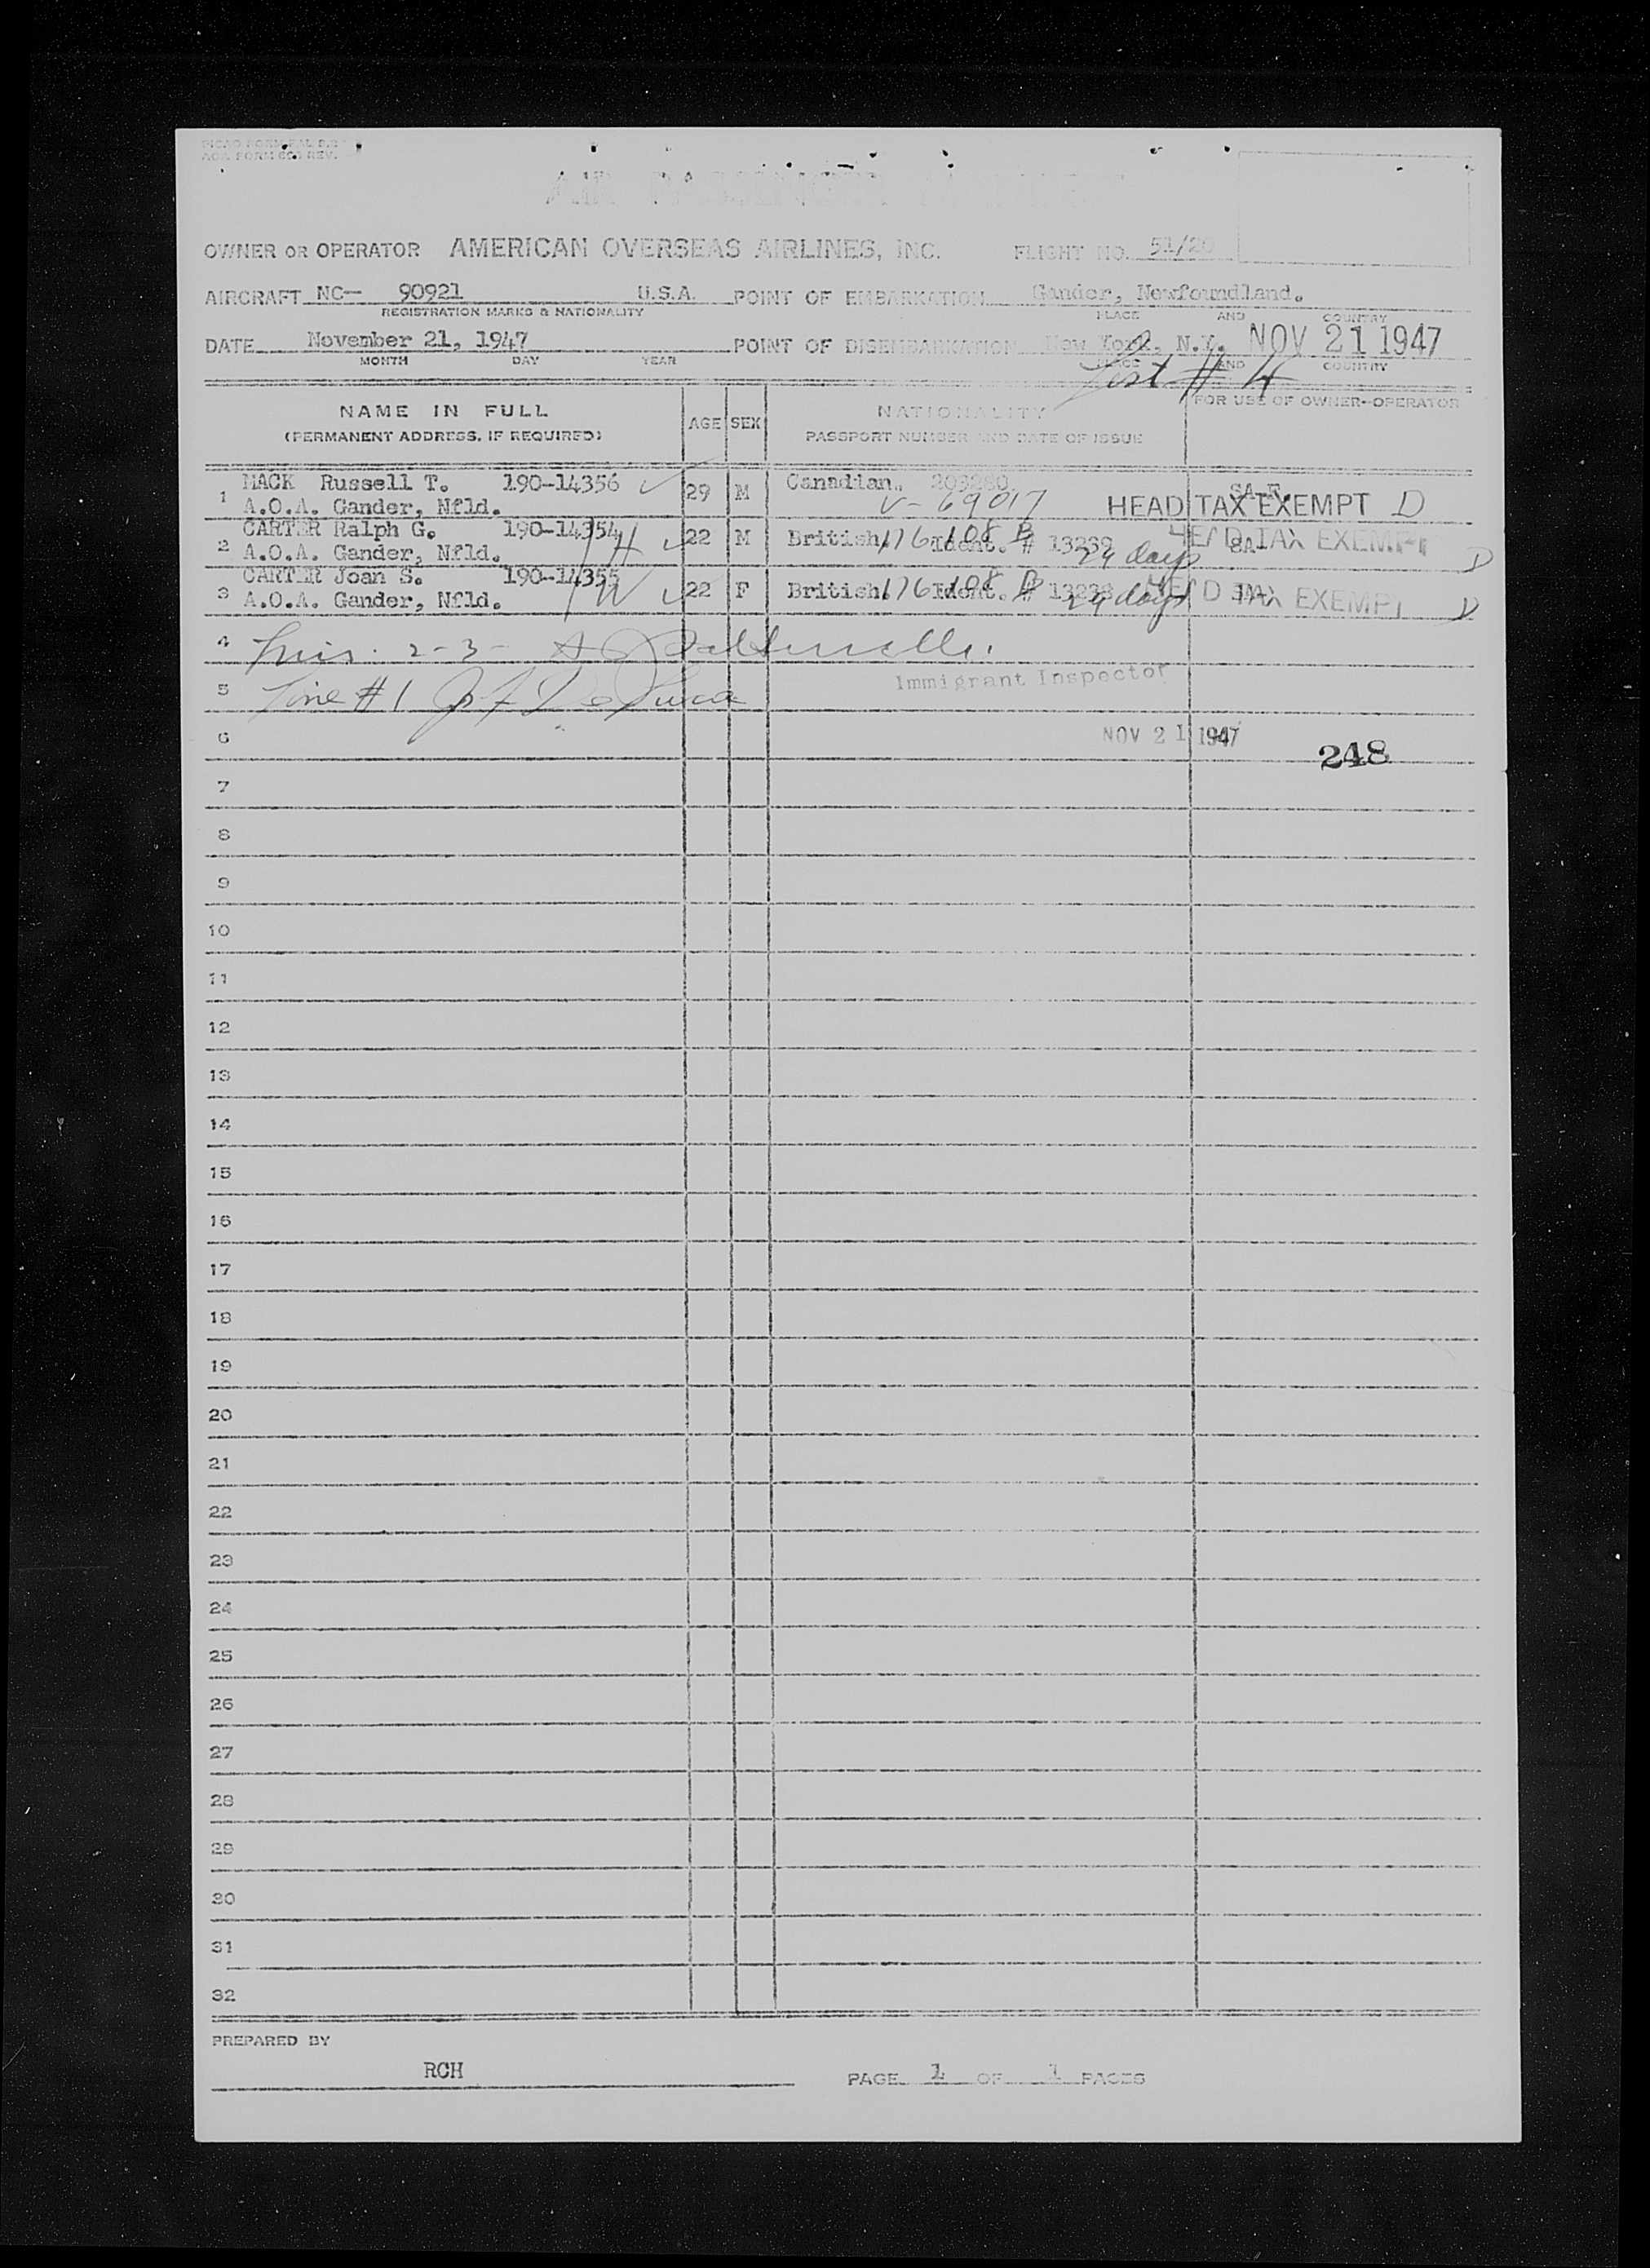 AIR PASSENGER MANIFEST
OWNER OR OPERATOR AMERICAN OVERSEAS AIRLINES, INC. FLIGHT NO. 51/20
AIRCRAFT NC— 90921 U.S.A. POINT OF EMBARKATION Gander, Newfoundland.
REGISTRATION MARKS & NATIONALITY PLACE AND COUNTRY
DATE November 21, 1947 POINT OF DISEMBARKATION New York, N.Y. NOV 21 1947
MONTH DAY YEAR PLACE AND COUNTRY
List # 4
NAME IN FULL AGE SEX NATIONALITY FOR USE OF OWNER-OPERATOR
(PERMANENT ADDRESS, IF REQUIRED) PASSPORT NUMBER AND DATE OF ISSUE
1 MACK Russell T. 190-14356 29 M Canadian. 203280.
A.O.A. Gander, Nfld. V-69017 HEAD TAX EXEMPT D
2 CARTER Ralph G. 190-14354 H 22 M British 176/108 B Ident. # 13239 SA HEAD TAX EXEMPT D
A.O.A. Gander, Nfld. 29 days
3 CARTER Joan S. 190-14355 W 22 F British 176/108 B Ident. # 13238 SA HEAD TAX EXEMPT D
A.O.A. Gander, Nfld. 29 days
4
2-3-
5 Line #1
Immigrant Inspector
6 NOV 21 1947 248
7
8
9
10
11
12
13
14
15
16
17
18
19
20
21
22
23
24
25
26
27
28
29
30
31
32
PREPARED BY
RCH PAGE 1 OF 1 PAGES